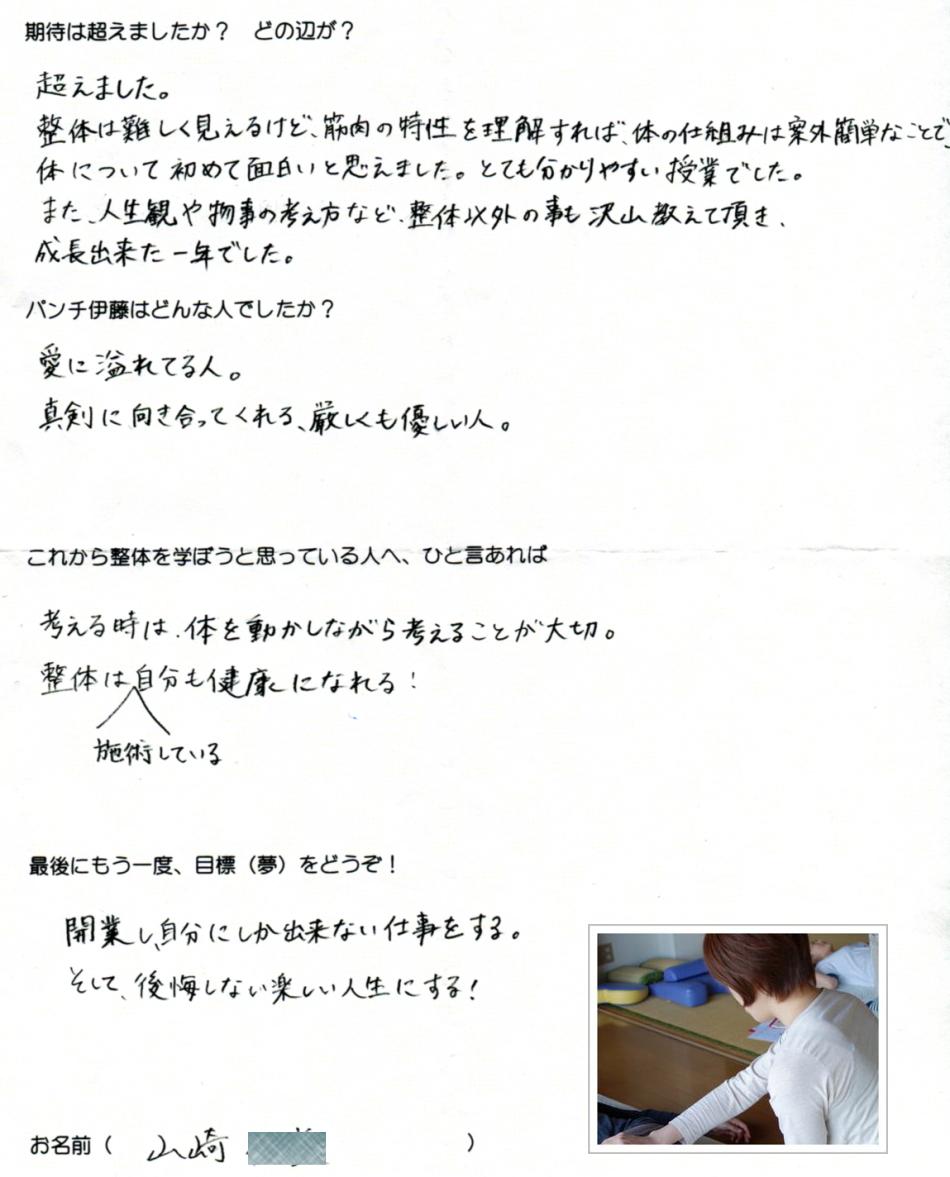 期待は超えましたか？　どの辺が？
超えました。
整体は難しく見えるけど、筋肉の特性を理解すれば、体の仕組みは案外簡単なことで、
体について初めて面白いと思えました。とても分かりやすい授業でした。
また、人生観や物事の考え方など、整体以外の事も沢山教えて頂き、
成長出来た一年でした。
パンチ伊藤はどんな人でしたか？
愛に溢れてる人。
真剣に向き合ってくれる、厳しくも優しい人。
これから整体を学ぼうと思っている人へ、ひと言あれば
考える時は、体を動かしながら考えることが大切。
整体は自分も健康になれる！
施術している
最後にもう一度、目標（夢）をどうぞ！
開業し、自分にしか出来ない仕事をする。
そして、後悔しない楽しい人生にする！
お名前（　山崎　）